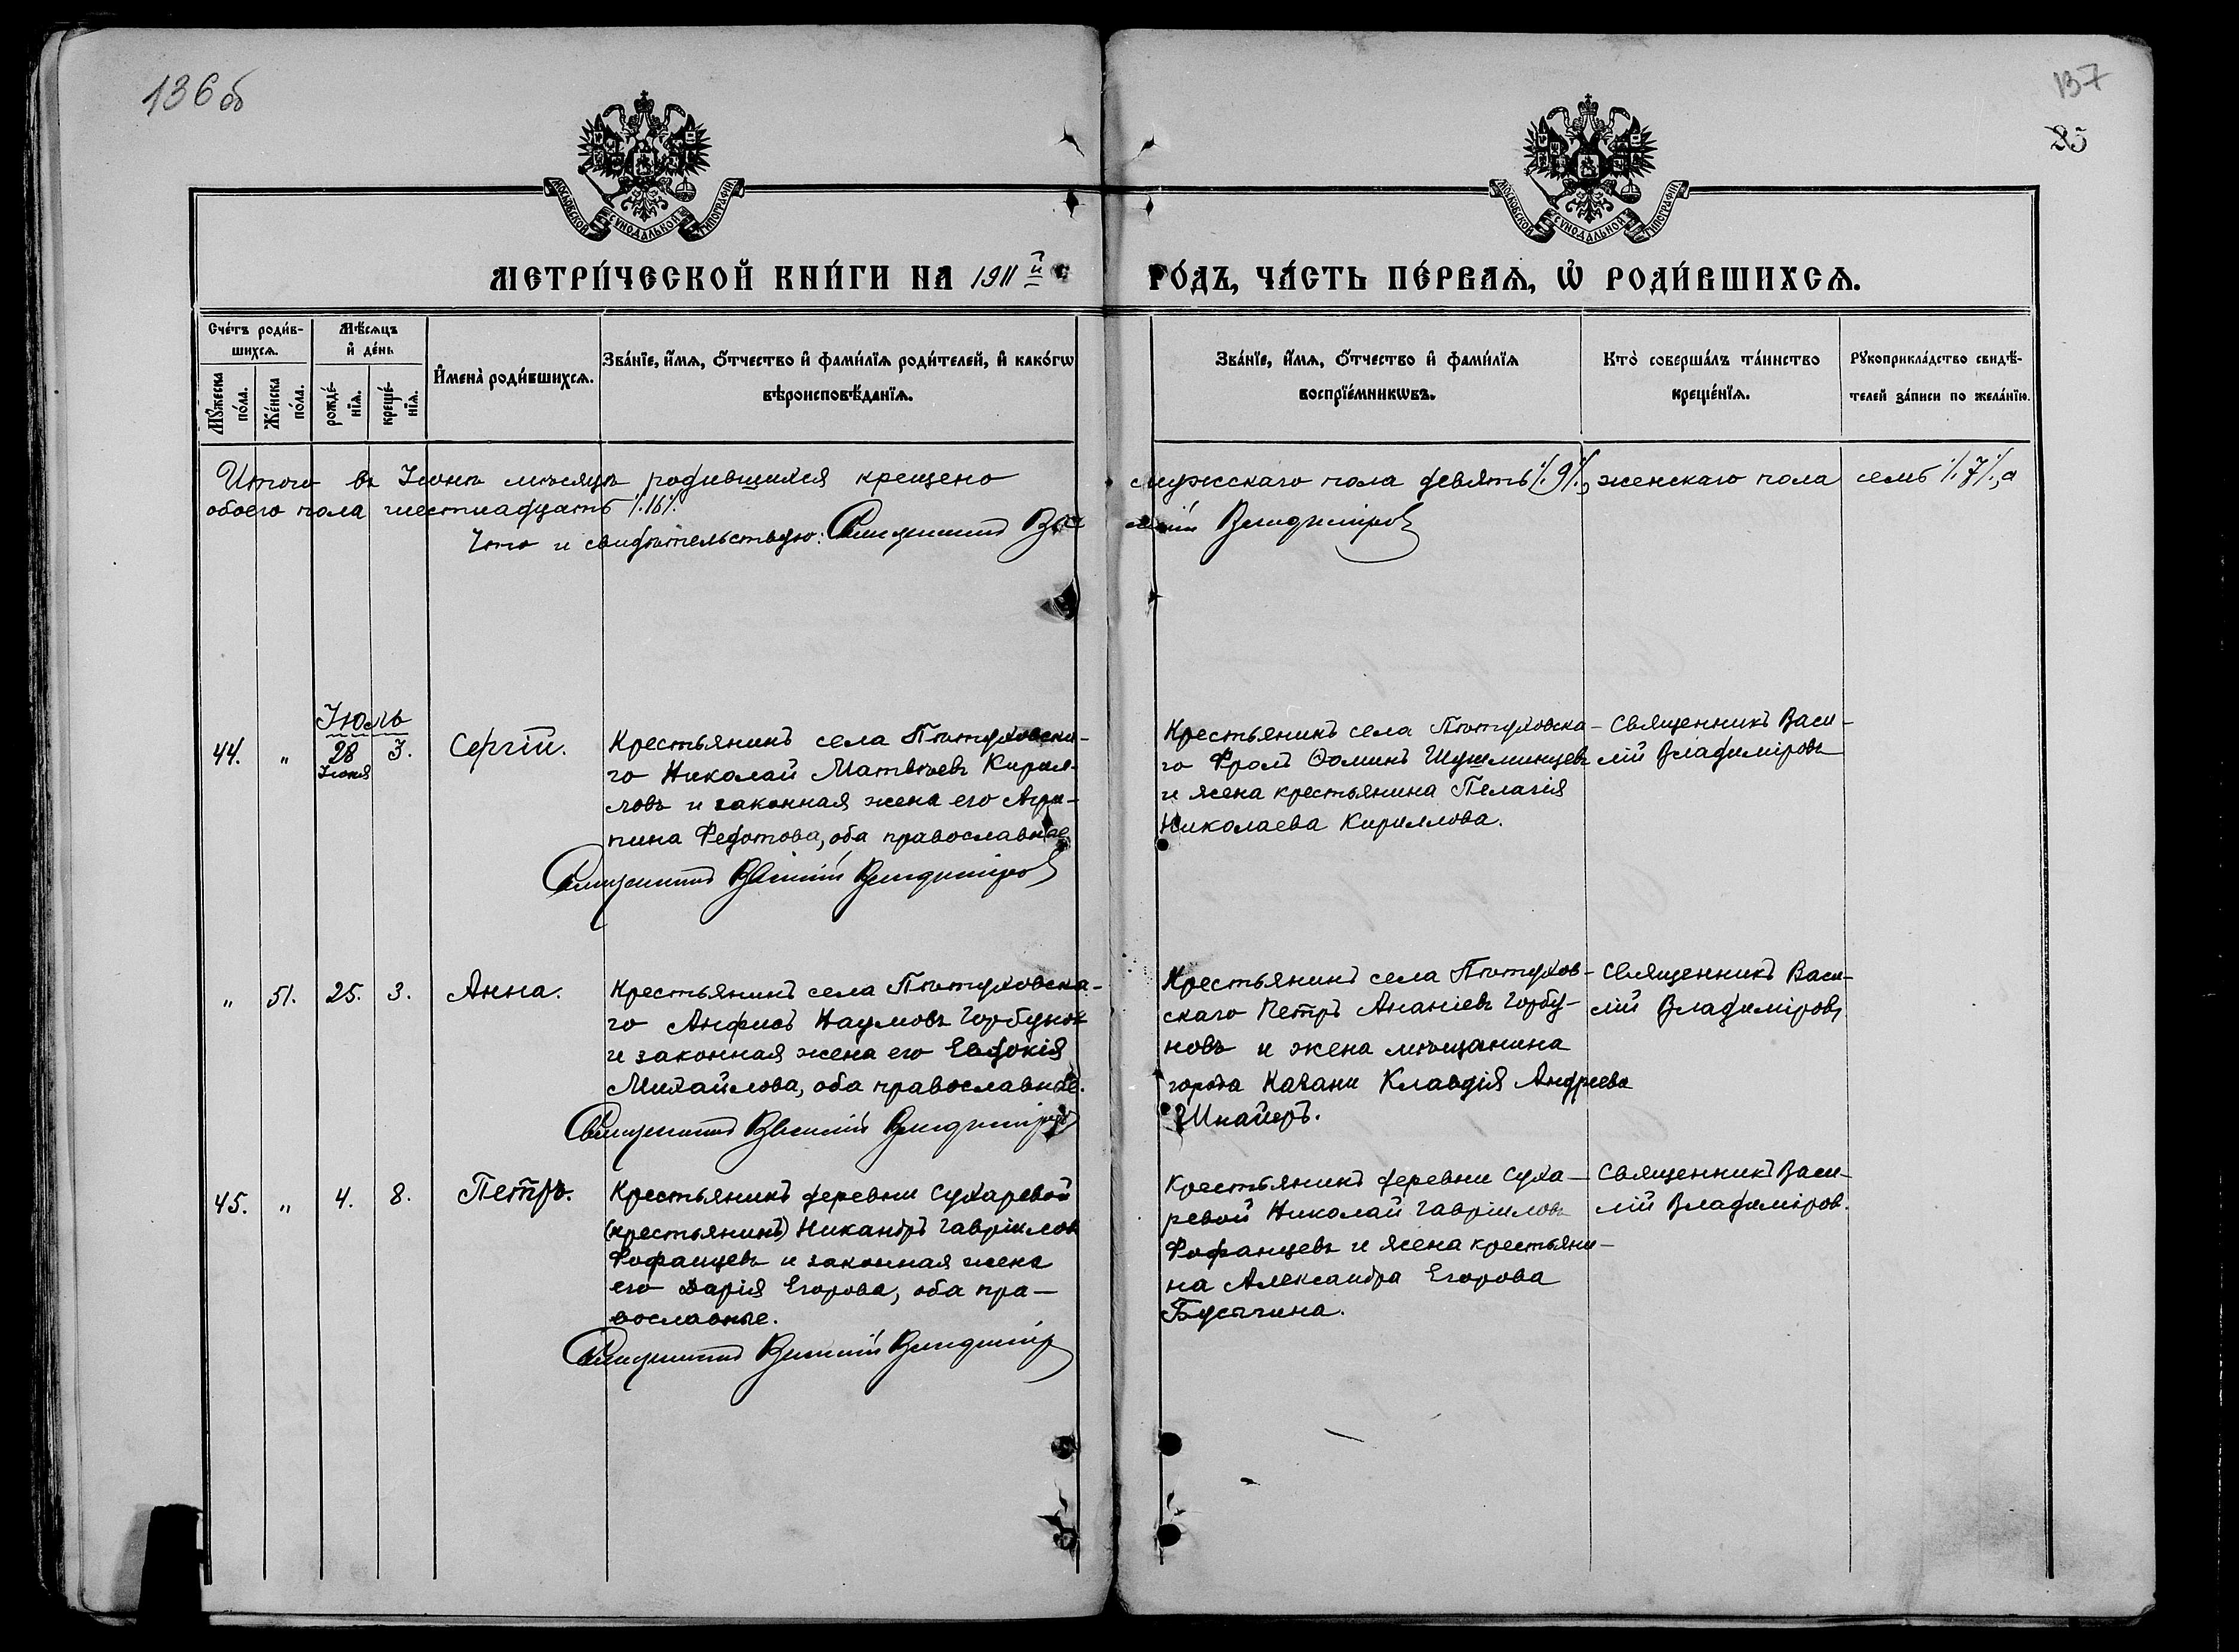 136 об
137
25
МОСКОВСКОЙ СУНОДАЛЬНОЙ ТИПОГРАФІИ
МОСКОВСКОЙ СУНОДАЛЬНОЙ ТИПОГРАФІИ
МЕТРИ́ЧЕСКОЙ КНИ́ГИ НА 1911й ГО́ДЪ, ЧА́СТЬ ПЕ́РВАѦ, Ѡ҆ РОДИ́ВШИХСѦ.
Сче́тъ роди́в-
шихсѧ.
Мꙋ́жеска по́ла.
Же́нска по́ла.
Мѣ́сѧцъ
и҆ де́нь
рожде́-
нїѧ.
креще́-
нїѧ.
И҆мена̀ роди́вшихсѧ.
Зва́нїе, и҆́мѧ, ѻ҆́тчество и҆ фами́лїѧ роди́телей, и҆ како́гѡ
вѣроисповѣ́данїѧ.
Зва́нїе, и҆́мѧ, ѻ҆́тчество и҆ фами́лїѧ
воспрїе́мникѡвъ.
Кто̀ соверша́лъ та́инство
креще́нїѧ.
Рꙋкоприкла́дство свидѣ́-
телей за́писи по жела́нїю.
Итого въ Іюнѣ мѣсяцѣ родившихся крещено мужскаго пола девять ./.9./., женскаго пола семь ./.7./., а
обоего пола шестнадцать ./.16./.
Что и свидѣтельствую: Священникъ Василій Владиміровъ
Іюль
44. " 28 Іюня 3. Сергій.
Крестьянинъ села Пѣтуховска-
го Николай Матвѣевъ Кирил-
ловъ и законная жена его Агри-
пина Федотова, оба православные
Священникъ Василій Владиміровъ
Крестьянинъ села Пѣтуховска-
го Фролъ Ѳоминъ Шушминцевъ
и жена крестьянина Пелагія
Николаева Кириллова.
Священникъ Васи-
лій Владиміровъ
" 51. 25. 3. Анна.
Крестьянинъ села Пѣтуховска-
го Анфисъ Наумовъ Горбуновъ
и законная жена его Евдокія
Михайлова, оба православные.
Священникъ Василій Владиміровъ
Крестьянинъ села Пѣтухов-
скаго Петръ Ананіевъ Горбу-
новъ и жена мѣщанина
города Казани Клавдія Андреева
Шнайеръ.
Священникъ Васи-
лій Владиміровъ
45. " 4. 8. Петръ.
Крестьянинъ деревни Сухаревой
(крестьянинъ) Никандръ Гавріиловъ
Фофанцевъ и законная жена
его Дарія Егорова, оба пра-
вославные.
Священникъ Василій Владиміровъ
Крестьянинъ деревни Суха-
ревой Николай Гавріиловъ
Фофанцевъ и жена крестьяни-
на Александра Егорова
Бусыгина.
Священникъ Васи-
лій Владиміров.